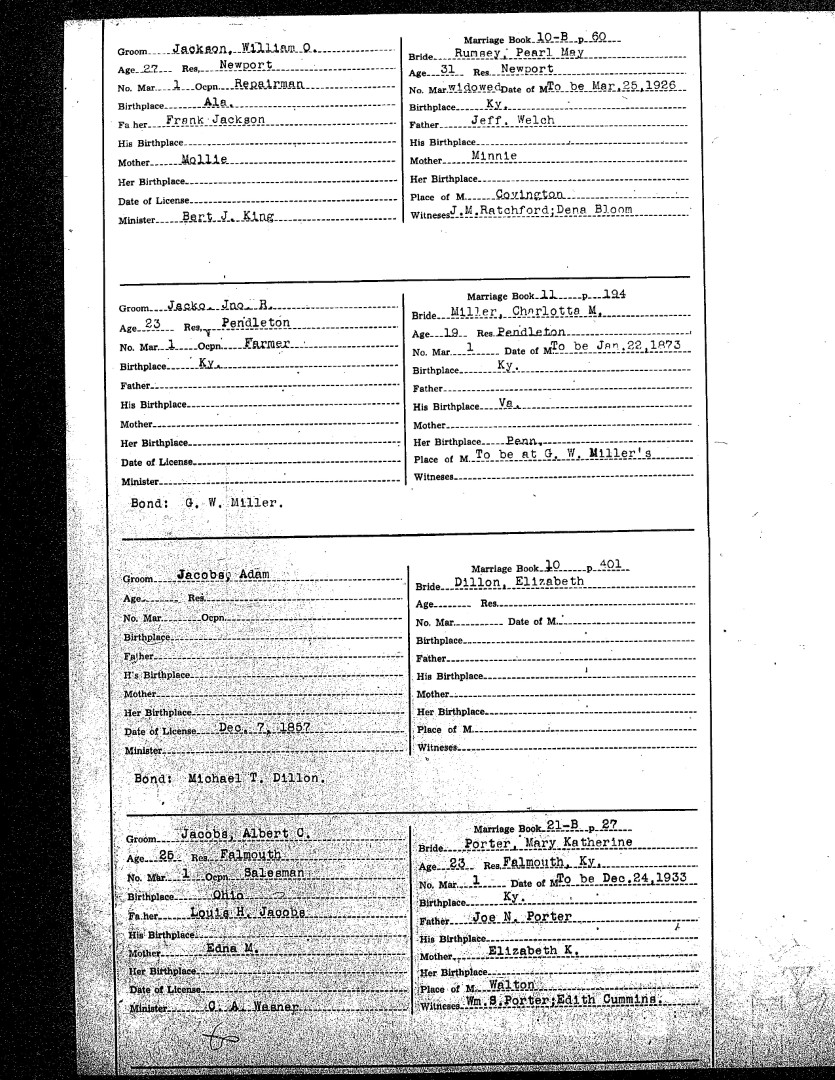 Groom Jackson, William O.
Age 27 Res. Newport
No. Mar. 1 Ocpn. Repairman
Birthplace Ala.
Fa her Frank Jackson
His Birthplace
Mother Mollie
Her Birthplace
Date of License
Minister Bert J. King
Marriage Book 10-B p. 60
Bride Rumsey, Pearl May
Age 31 Res. Newport
No. Mar. widowed Date of M. To be Mar.25,1926
Birthplace Ky.
Father Jeff. Welch
His Birthplace
Mother Minnie
Her Birthplace
Place of M. Covington
Witneses J.M.Ratchford;Dena Bloom
Groom Jacko, Jno. R.
Age 23 Res. Pendleton
No. Mar. 1 Ocpn. Farmer
Birthplace Ky.
Father
His Birthplace
Mother
Her Birthplace
Date of License
Minister
Bond: G. W. Miller.
Marriage Book 11 p. 194
Bride Miller, Charlotta M.
Age 19 Res. Pendleton
No. Mar. 1 Date of M. To be Jan.22,1873
Birthplace Ky.
Father
His Birthplace Va.
Mother
Her Birthplace Penn.
Place of M. To be at G. W. Miller's
Witneses
Groom Jacobs, Adam
Age Res.
No. Mar. Ocpn.
Birthplace
Father
H's Birthplace
Mother
Her Birthplace
Date of License Dec. 7, 1857
Minister
Bond: Michael T. Dillon.
Marriage Book 10 p. 401
Bride Dillon, Elizabeth
Age Res.
No. Mar. Date of M.
Birthplace
Father
His Birthplace
Mother
Her Birthplace
Place of M.
Witneses
Groom Jacobs, Albert C.
Age 25 Res. Falmouth
No. Mar. 1 Ocpn. Salesman
Birthplace Ohio
Fa her Louis H. Jacobs
His Birthplace
Mother Edna M.
Her Birthplace
Date of License
Minister C. A. Wesner
Marriage Book 21-B p. 27
Bride Porter, Mary Katherine
Age 23 Res. Falmouth, Ky.
No. Mar. 1 Date of M. To be Dec.24,1933
Birthplace Ky.
Father Joe N. Porter
His Birthplace
Mother Elizabeth K.
Her Birthplace
Place of M. Walton
Witneses Wm.S.Porter;Edith Cummins.